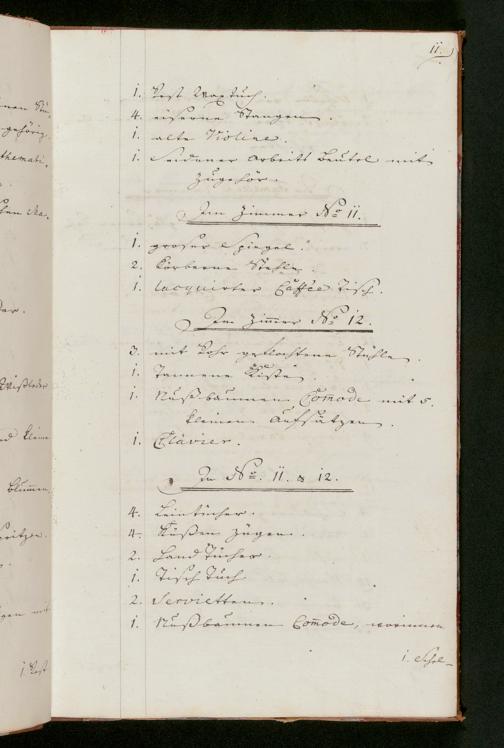 11.
1. Rest Wachstuch.
4. eiserne Stangen.
1. alte Violine.
1. Seidener Arbeits Beutel mit
Zugehör.
Im Zimmer No 11.
1. groser Spiegel.
2. Körberne Stühle.
1. lacquirter Caffée Tisch.
Im Zimmer No 12.
3. mit Rohr geflochtene Stühle.
1. Tannene Kiste.
1. Nußbäumene Comode mit 5.
kleinen Aufsätzen.
1. Clavier.
In No. 11. & 12.
4. Leintücher.
4. Küßen Zügen.
2. Hand Tücher.
1. Tisch Tuch
2. Servietten.
1. Nußbäumene Comode, worinnen
1. Rest